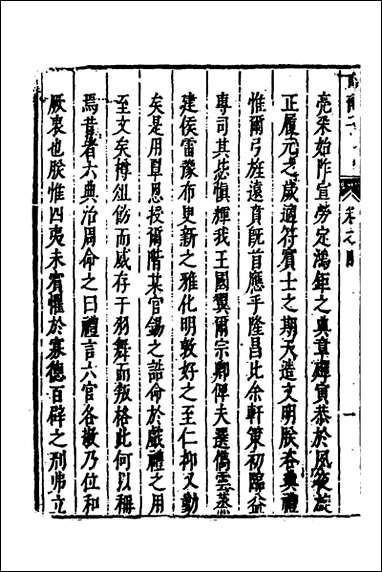 亮采始阼宣勞定鴻鉅之典章殫寅恭於夙夜茲
正履元之歲適符賓士之期天造文明朕咨典禮
惟爾弓旌遠賁既首應乎隆昌比余軒策初臨益
專司其愆慎輝我王國翼爾宗卿俾夫選儁雲蒸
建侯雷豫布更新之雅化明敦好之至仁抑又勤
矣是用覃恩授爾階某官錫之誥命於戲禮之用
至文矣樽俎飭而威存干羽舞而叛格此何以稱
焉昔者六典治周命之曰禮言六官各敬乃位和
厥衷也朕惟四夷未賓懼於寡德百辟之刑弗立
卷之四
一